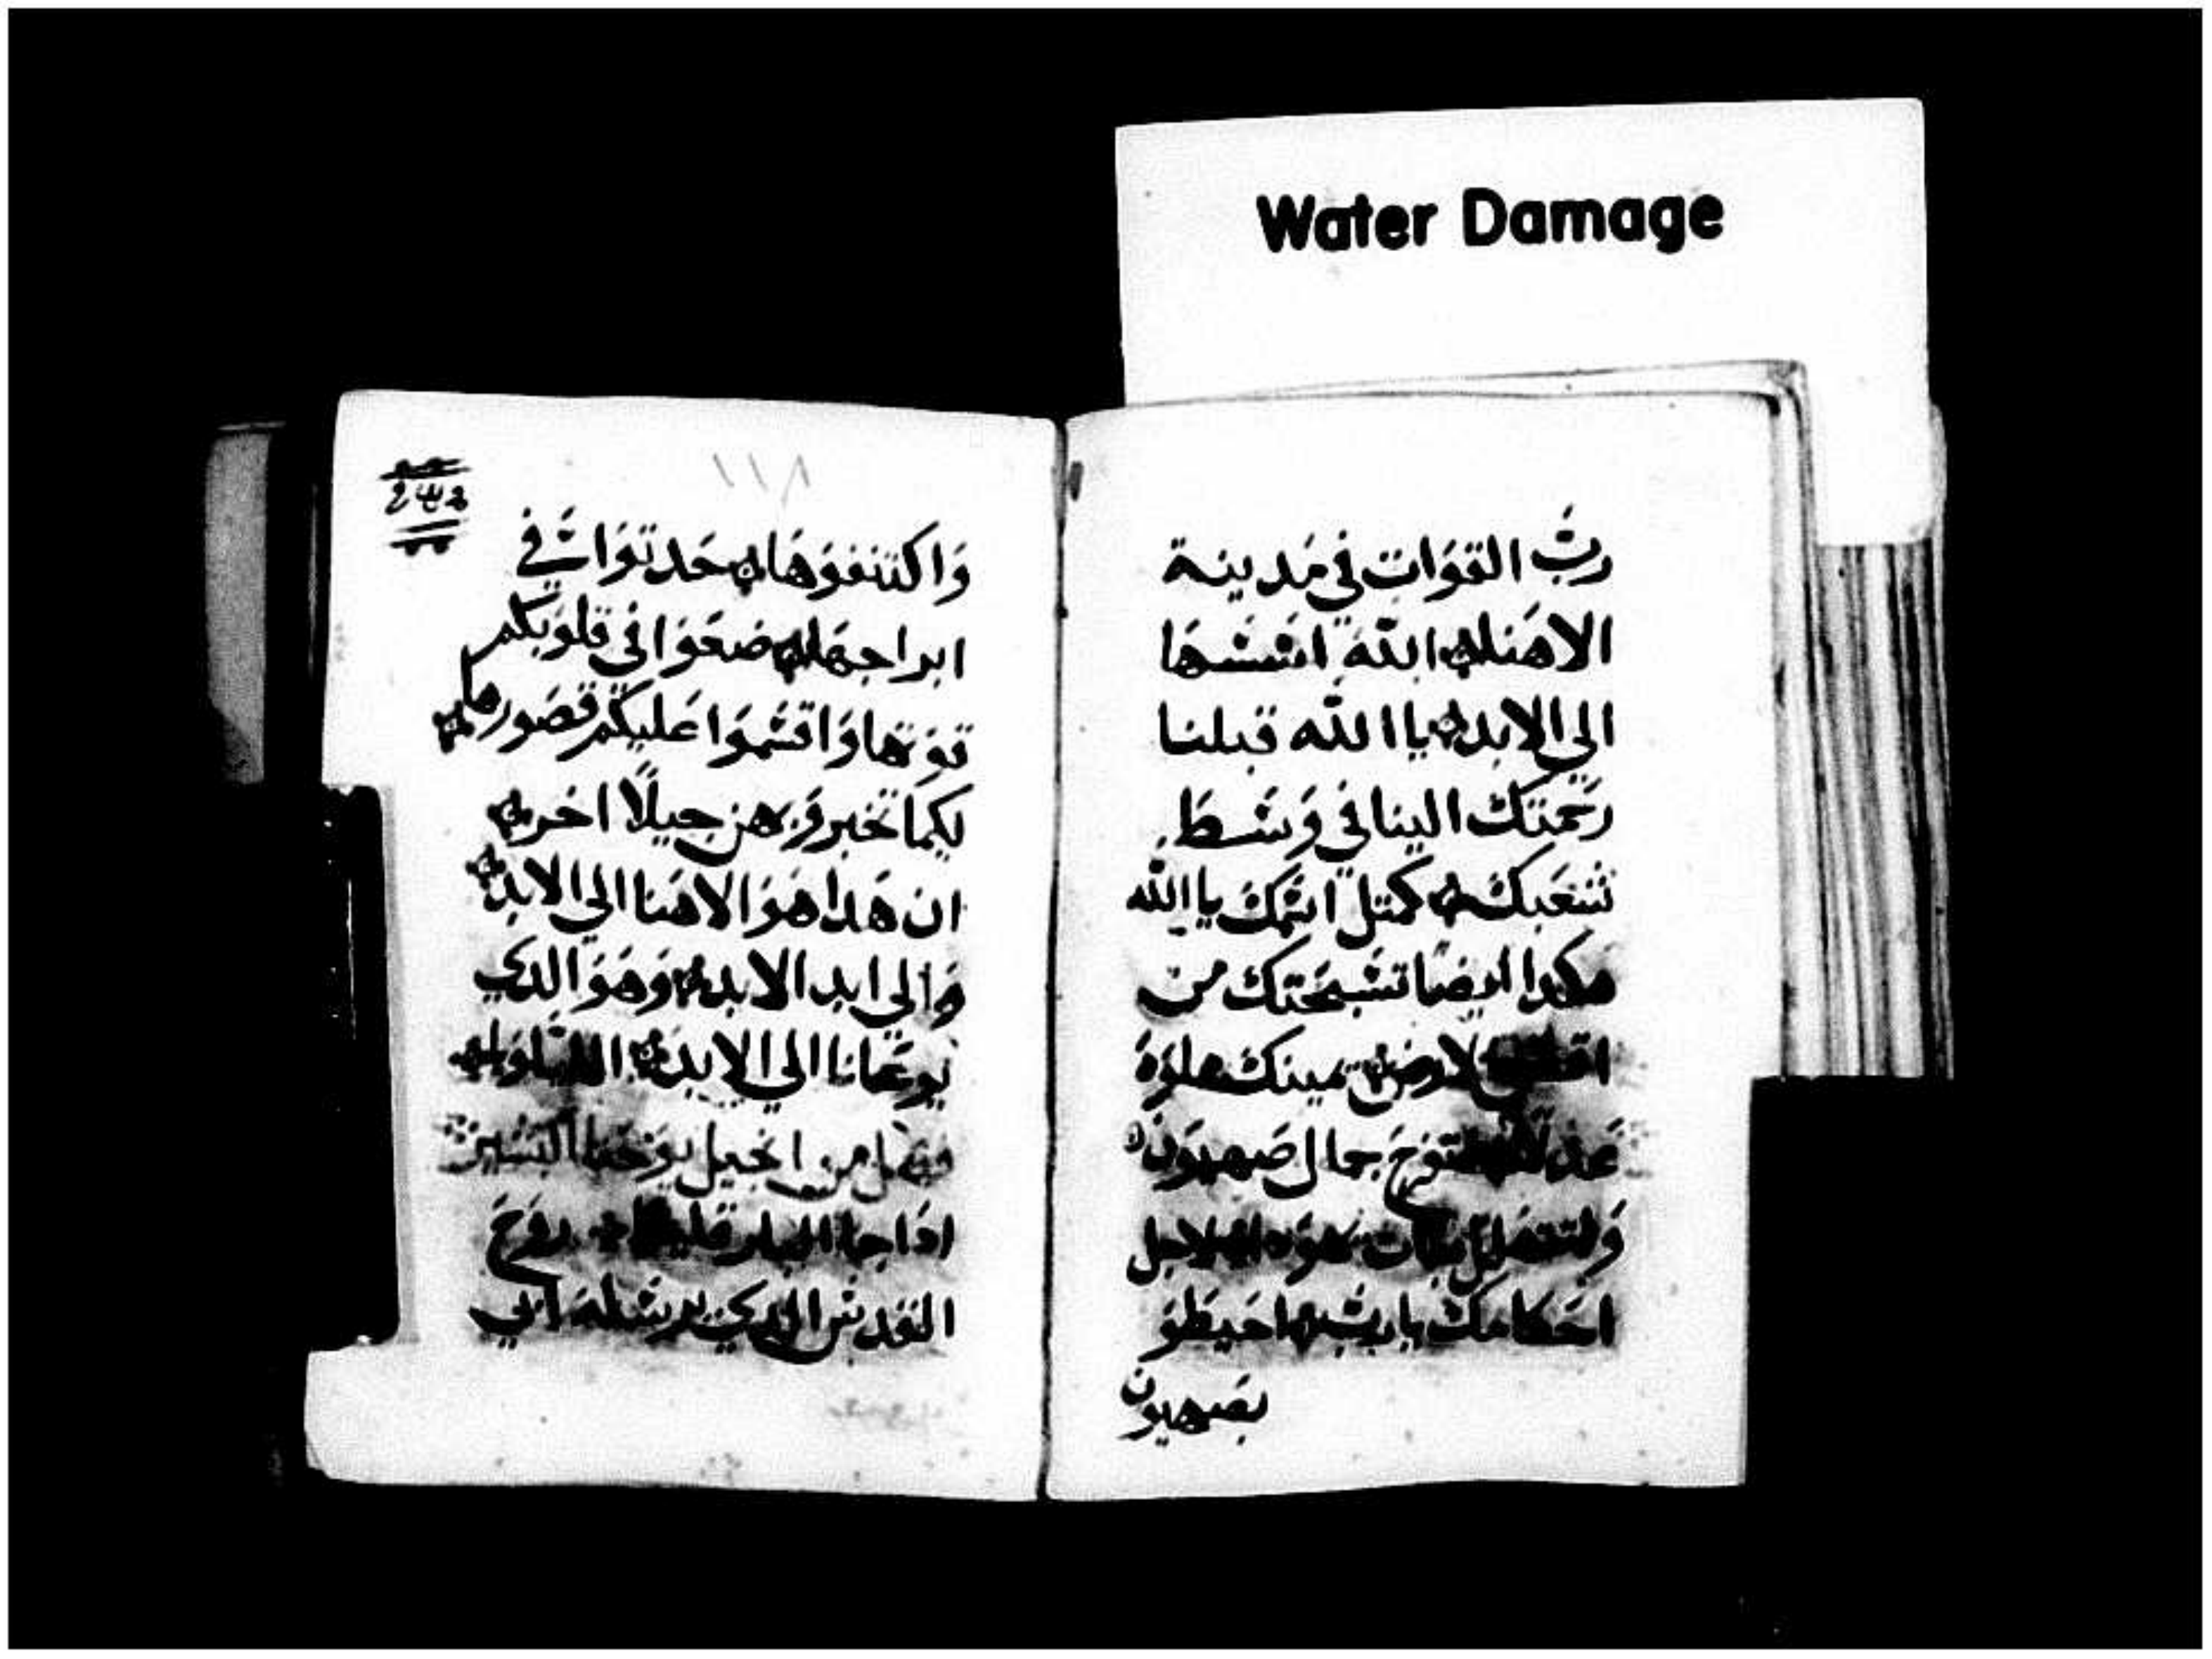 Water Damage
رب القوات في مدينة
الاهنا الله اسسها
الي الابد يا الله قبلنا
رحمتك الينا في وسط
شعبك كمتل اسمك يا الله
هكدا ايضا تسبحتك من
الارض يمينك مملوه
عدلا جبال صهيون
ولتتهلل بنات يهودا لاجل
احكامك يا رب احيطو
بصهيون
١١٨
واكتنفوها حدتوا في
ابراجها ضعوا في قلوبكم
قوتها واقسموا عليكم قصورها
لكيما تخبرو بهن جيلا اخر
ان هدا هو الاهنا الي الابد
والي ابد الابد وهو الدي
يرعانا الي الابد الليلويا
فصل من انجيل يوحنا البشير
اداجا روح
القدس الدي يرسله ابي